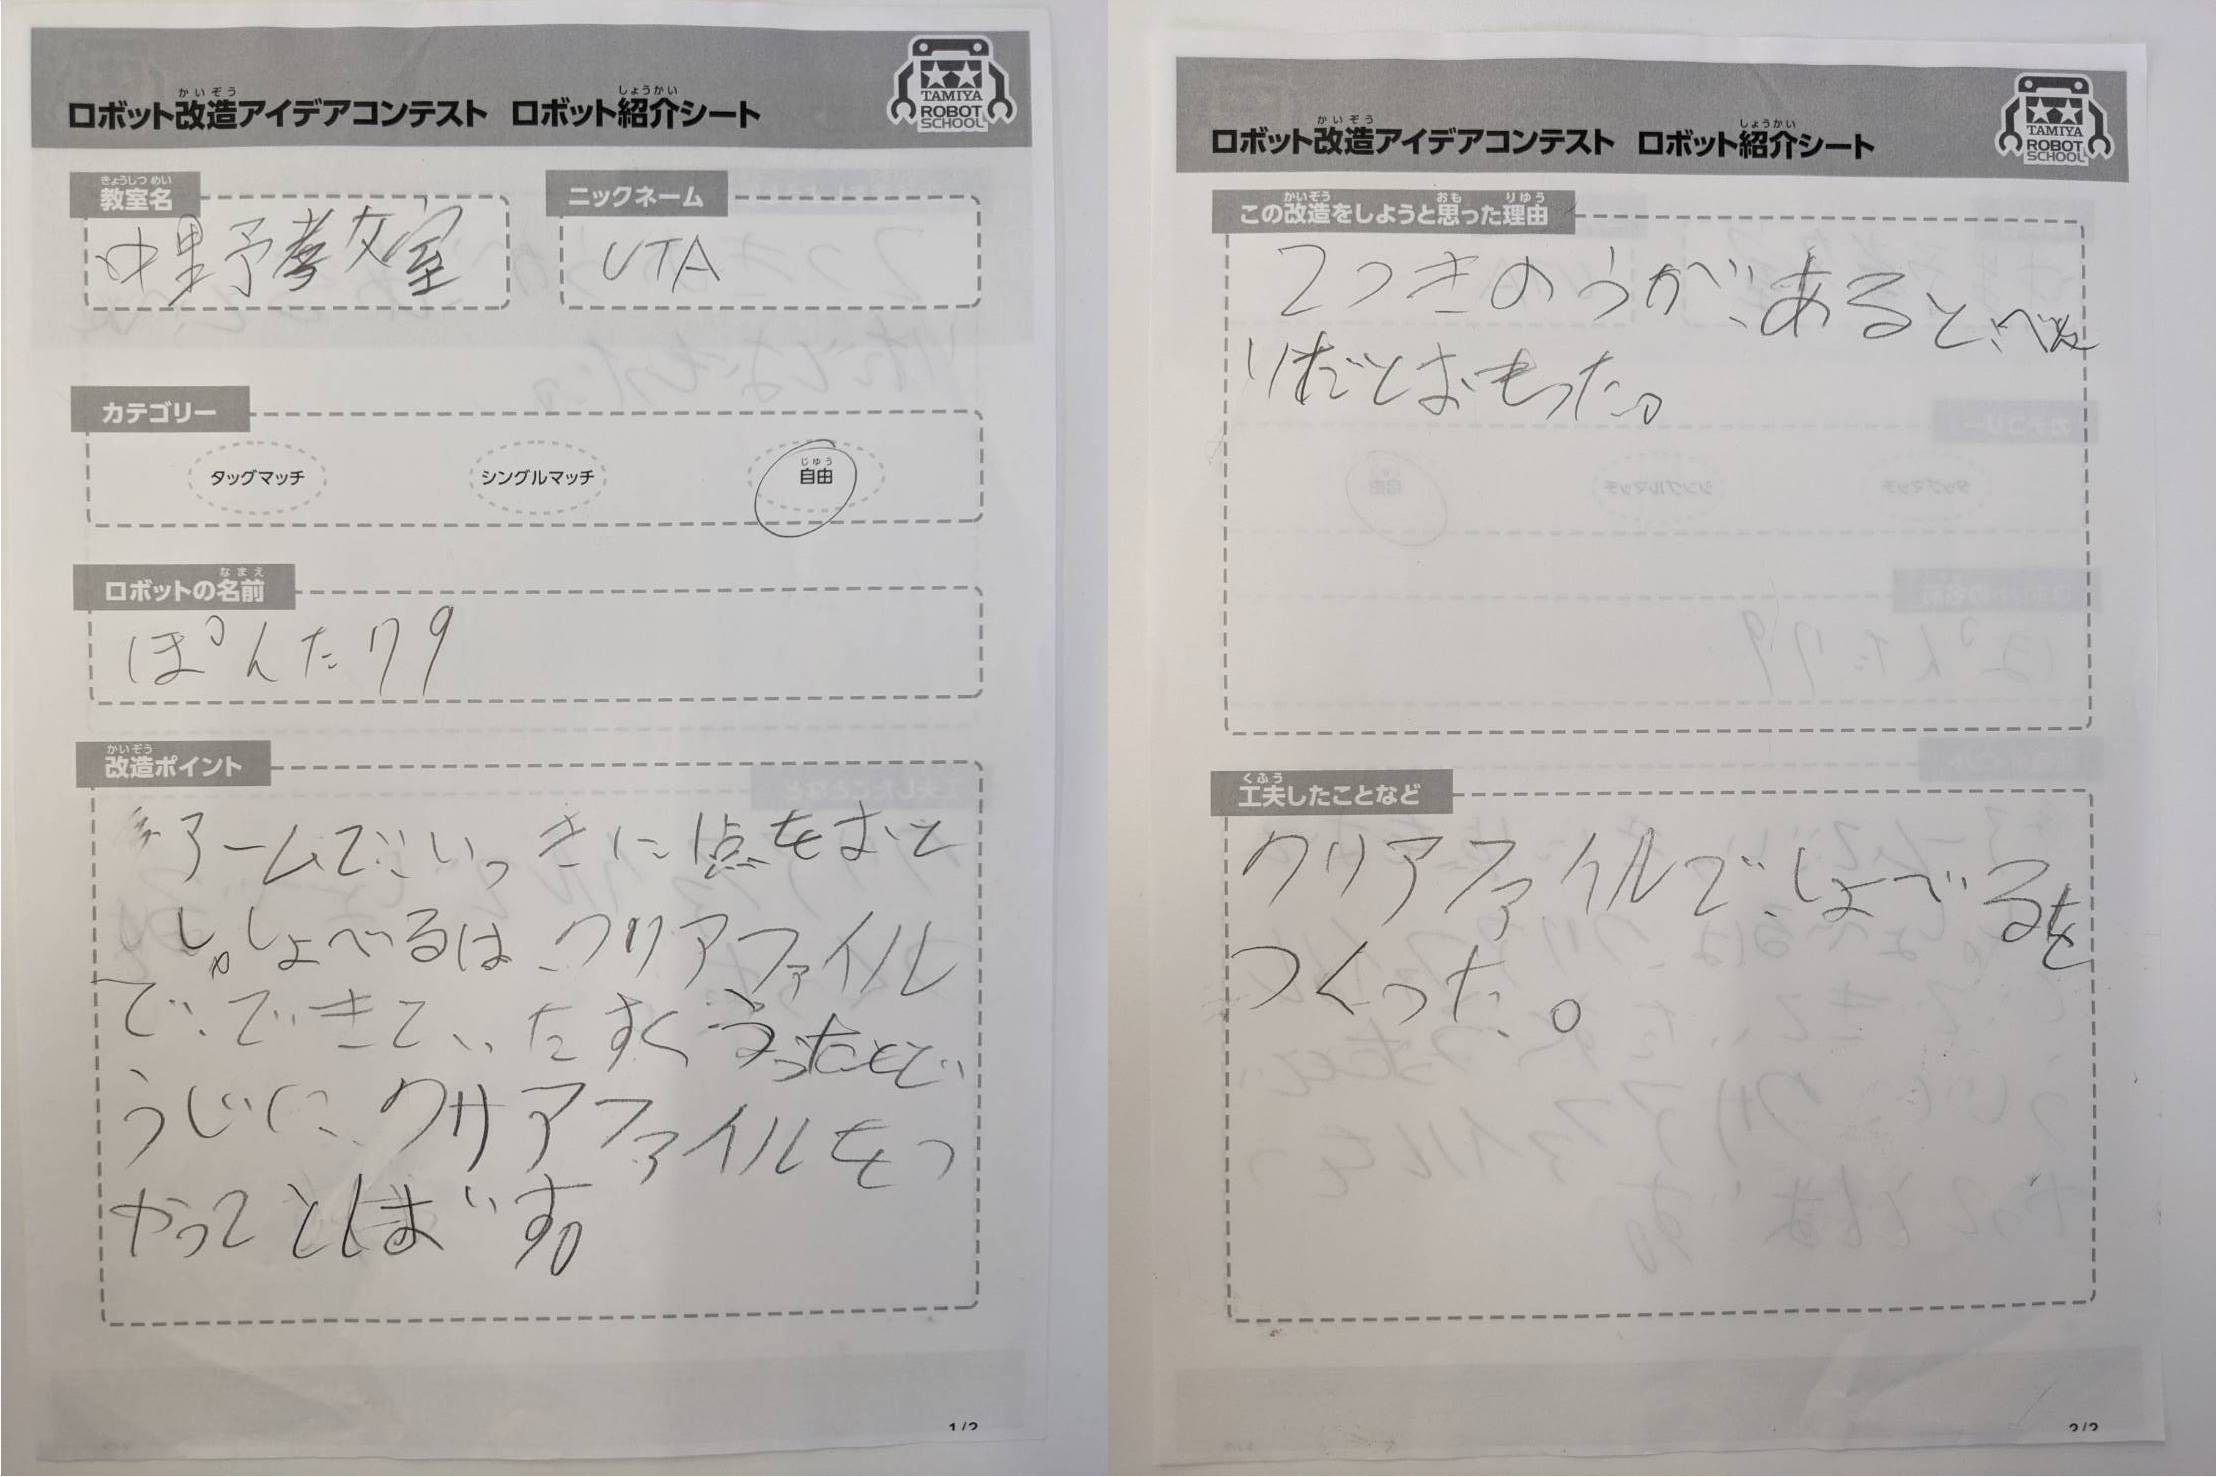 かいぞう しょうかい
ロボット改造アイデアコンテスト ロボット紹介シート
TAMIYA
ROBOT
SCHOOL
きょうしつ めい
教室名
ニックネーム
教室
UTA
カテゴリー
タッグマッチ
シングルマッチ
じゆう
自由
なまえ
ロボットの名前
ぽんた79
かいぞう
改造ポイント
アームでいっきに点をおと
し、しょべるは、クリアファイル
で、できて、たすくうったとど
うじに、クリアファイルをつ
かってとばす。
1/2
かいぞう しょうかい
ロボット改造アイデアコンテスト ロボット紹介シート
TAMIYA
ROBOT
SCHOOL
かいぞう おも りゆう
この改造をしようと思った理由
2つきのうが、あると、べん
りだとおもった。
くふう
工夫したことなど
クリアファイルで、しょべるを
つくった。
2/2